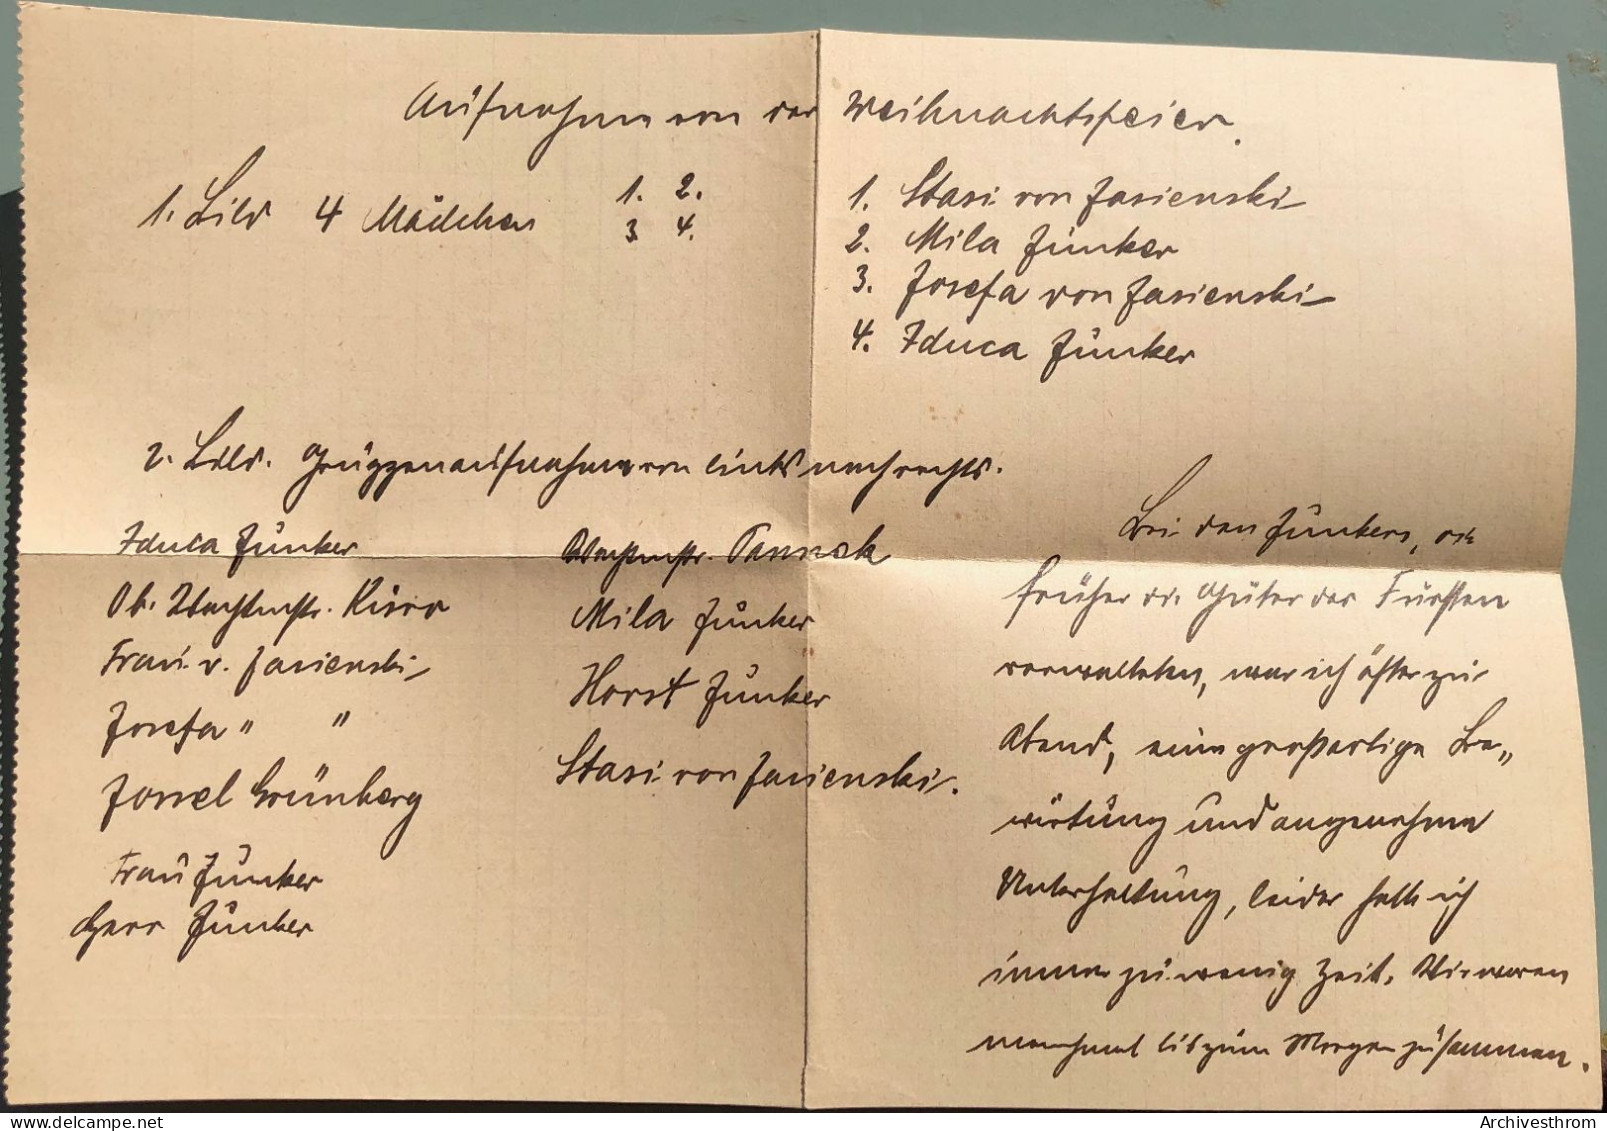 Aufnahmen von der Weihnachtsfeier.
1. Bild 4 Mädchen 1. 2.
3 4.
1. Stasi von Jasienski
2. Mila Junker
3. Josefa von Jasienski
4. Iduca Junker
2. Bild. Gruppenaufnahme von links nach rechts.
Iduca Junker
Ob. Wachtmstr.
Frau v. Jasienski
Josefa " "
Jossel Grünberg
Frau Junker
Herr Junker
Wachtmstr. Pannek
Mila Junker
Horst Junker
Stasi von Jasienski.
Bei den Junkers, die
früher die Güter des Fürsten
verwalteten, war ich öfter zu
Abend, eine großartige Be„
wirtung und angenehme
Unterhaltung, leider hatte ich
immer zu wenig Zeit. Wir waren
manchmal bis zum Morgen zusammen.
Archivesthrom